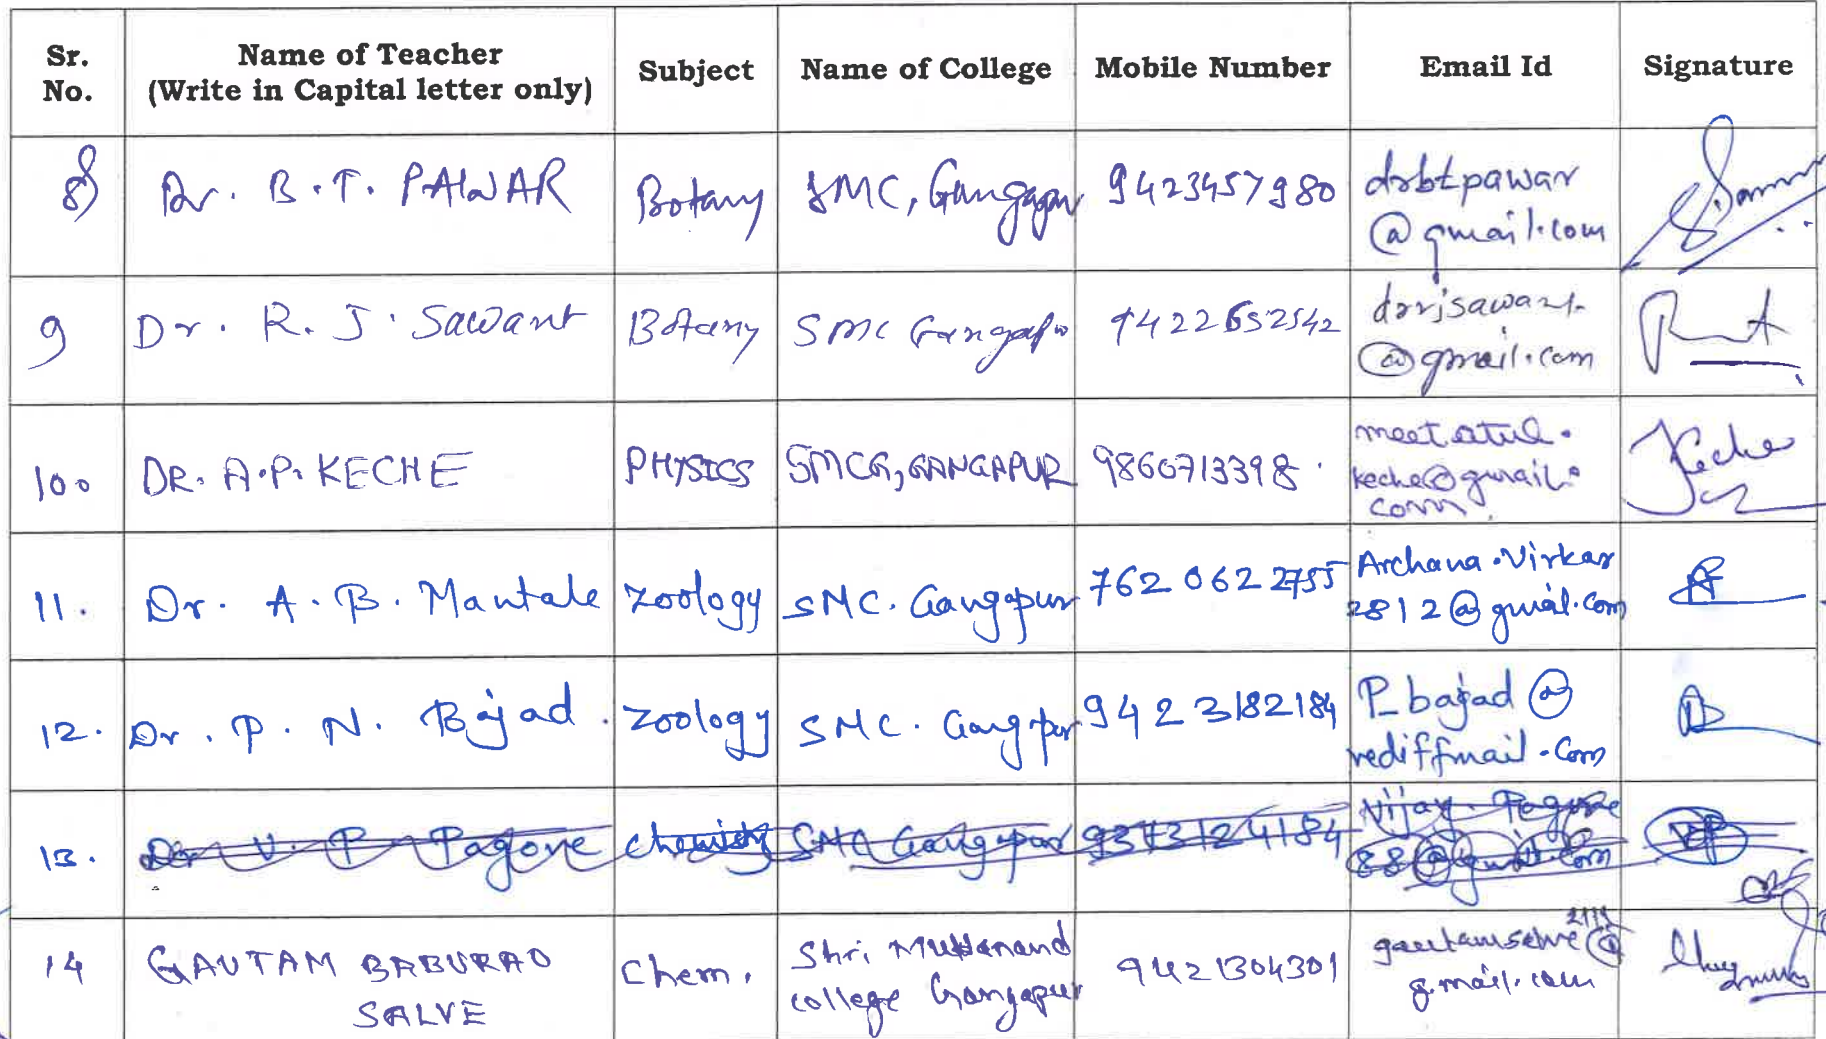 Sr. No. Name of Teacher (Write in Capital letter only) Subject Name of College Mobile Number Email Id Signature
8) Dr. B.T. PAWAR Botany SMC, Gangapur 9423457980 drbtpawar @gmail.com
9 Dr. R. J. Sawant Botany SMC Gangapur 9422652542 drrjsawant @gmail.com
10. DR. A.P. KECHE PHYSICS SMCG, GANGAPUR 9860713398. meetatul. keche@gmail. com Keche
11. Dr. A. B. Mantale Zoology SMC. Gangapur 7620622755 Archana.Virkar 2812@gmail.com
12. Dr. P. N. Bajad. Zoology SMC. Gangpur 9423182184 P_bajad@ rediffmail.com
13. Dr V. P. Pagore Chemistry SMC Gangapur 9373124184 Vijay. Pagore 88@gmail.com
14 GAUTAM BABURAO SALVE Chem. Shri Muktanand college Gangapur 9421304301 gautamsalve2111@ gmail.com